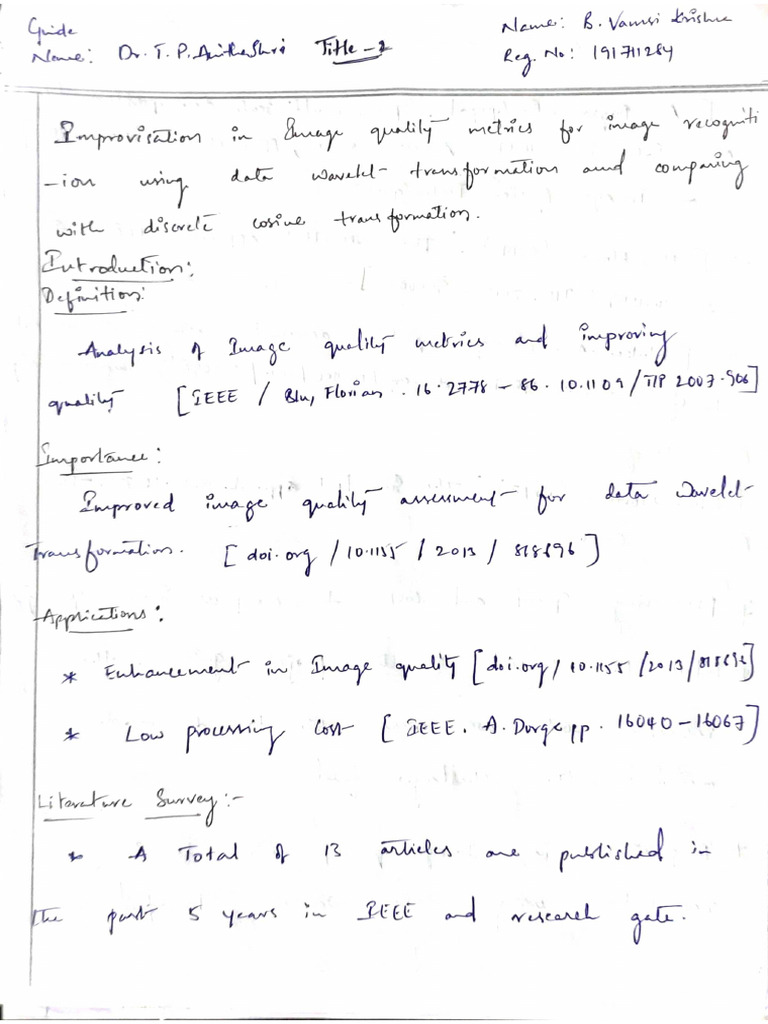 Guide
Name: Dr. T. P. Anitha Shri Title - 2
Name: B. Vamsi Krishna
Reg. No: 191711284
Improvisation in Image quality metrics for image recogniti
-ion using data wavelet transformation and comparing
with discrete cosine transformation.
Introduction:
Definition:
Analysis of Image quality metrics and improving
quality [IEEE / Blu, Florian. 16. 2778 - 86. 10.1109/TIP 2007.906]
Importance:
Improved image quality assessment for data wavelet
Transformation. [doi.org / 10.1155 / 2013 / 818696]
Applications:
* Enhancement in Image quality [doi.org/10.1155/2013/818696]
* Low processing cost [IEEE. A. Durge pp. 16040-16067]
Literature Survey:-
* A Total of 13 articles are published in
the past 5 years in IEEE and research gate.